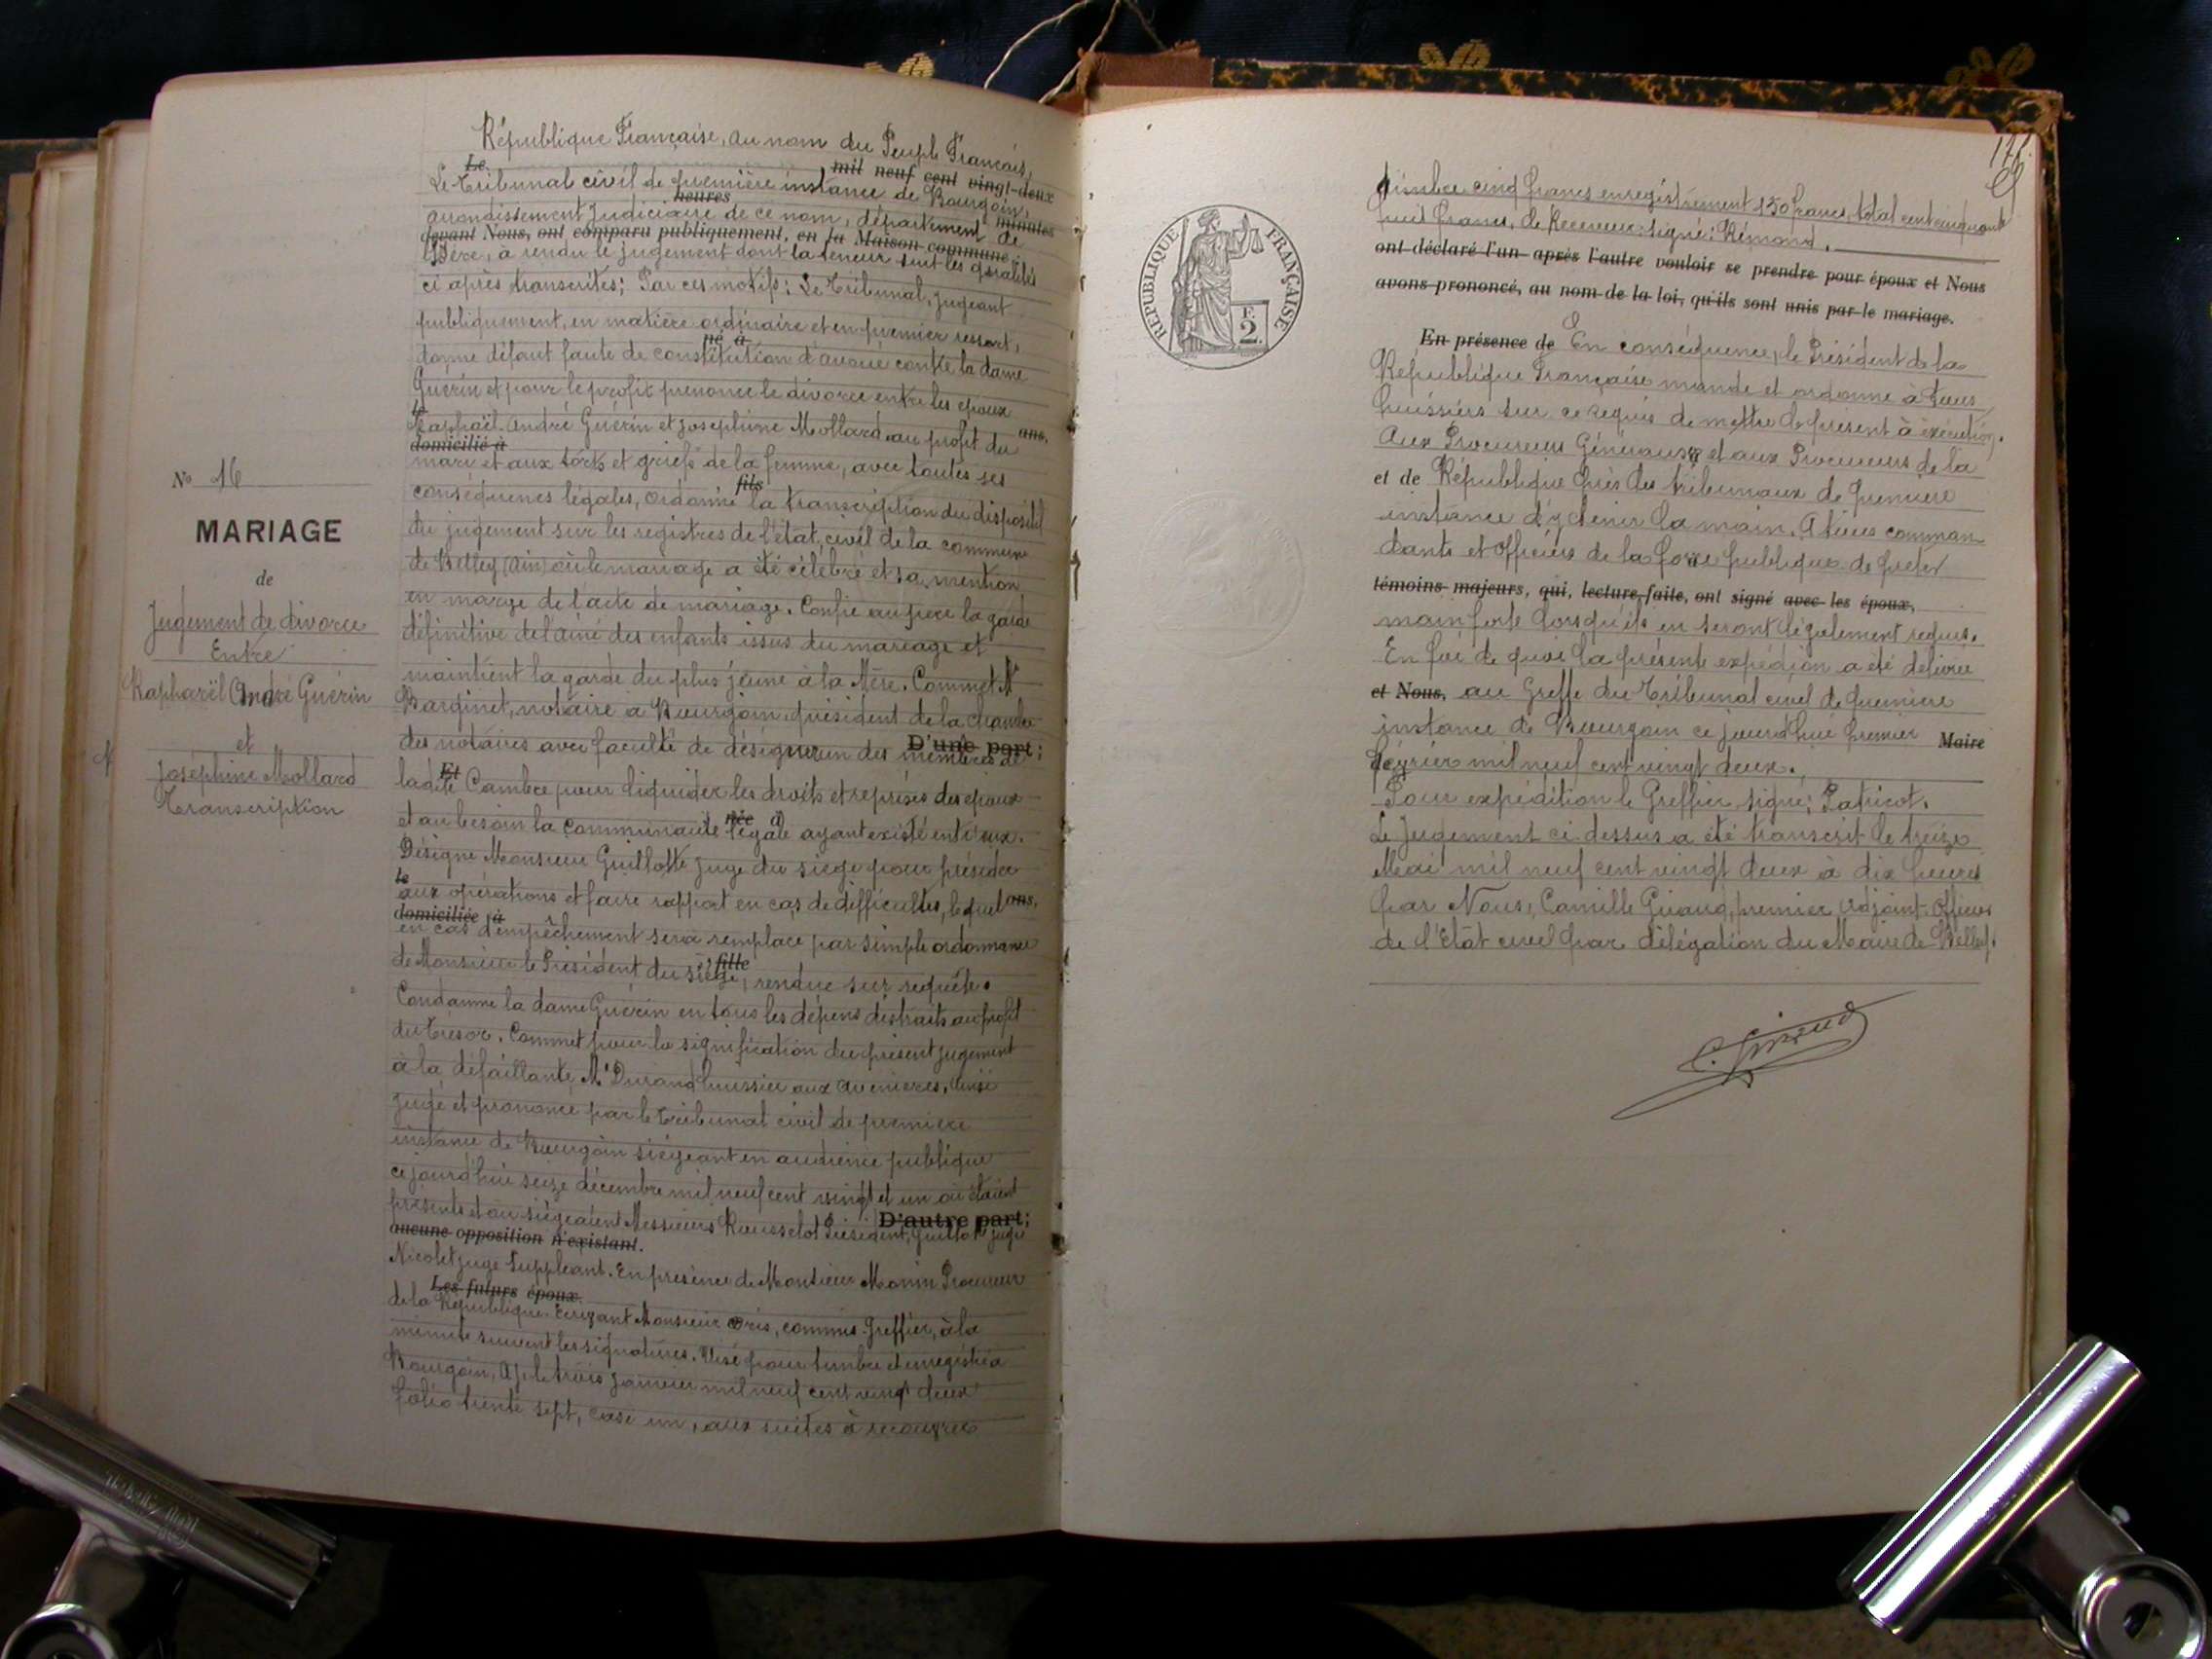 N° 16
MARIAGE
de
Jugement de divorce
Entre
Raphaël André Guérin
et
Joséphine Mollard
Transcription
République Française, au nom du Peuple Français,
Le mil neuf cent vingt-deux
Le Tribunal civil de première instance de Bourgoin,
heures minutes
arrondissement judiciaire de ce nom, département de
devant Nous, ont comparu publiquement, en la Maison commune:
l'Isère, à rendu le jugement dont la teneur suit les qualités
ci après transcrites; Par ces motifs; Le Tribunal, jugeant
publiquement, en matière ordinaire et en premier ressort,
né à
donne défaut faute de constitution d'avoué contre la dame
Guérin et pour le profit prononce le divorce entre les époux
le ans,
Raphaël André Guérin et Joséphine Mollard au profit du
domicilié à
mari et aux torts et griefs de la femme, avec toutes ses
fils
conséquences légales, ordonne la transcription du dispositif
du jugement sur les registres de l'état civil de la commune
de Belley (Ain) où le mariage a été célébré et sa mention
en marge de l'acte de mariage. Confie au père la garde
définitive de l'aîné des enfants issus du mariage et
maintient la garde du plus jeune à la Mère. Commet Me
Barginet, notaire à Bourgoin, président de la chambre
des notaires avec faculté de désigner un des membres de
D'une part;
Et
ladite Cambre pour liquider les droits et reprises des époux
née à
et au besoin la communauté légale ayant existé entr'eux.
Désigne Monsieur Guillotte juge du siège pour présider
le ans,
aux opérations et faire rapport en cas de difficultés, lequel
domiciliée à
en cas d'empêchement sera remplacé par simple ordonnance
fille
de Monsieur le Président du siège, rendue sur requête.
Condamne la dame Guérin en tous les dépens distraits au profit
du Trésor. Commet pour la signification du présent jugement
à la défaillante, Me Durand huissier aux Avenières. Ainsi
jugé et prononcé par le Tribunal civil de première
instance de Bourgoin siégeant en audience publique
ce jourd'hui seize décembre mil neuf cent vingt et un où étaient
D'autre part;
présents et où siégeaient Messieurs Rousselot Président, Guillot juge
aucune opposition n'existant.
Nicolet juge suppléant. En présence de Monsieur Monin Procureur
Les futurs époux.
de la République. Ecrivant Monsieur Oris, commis-Greffier, à la
minute suivent les signatures. Visé pour timbre et enregistré à
Bourgoin, A.J. le trois janvier mil neuf cent vingt deux
folio trente sept, case un, aux suites à recouvrer
RÉPUBLIQUE FRANÇAISE
F.
2.
timbre cinq francs enregistrement 150 francs, total cent cinquante
huit francs, le Receveur signé: Rémond.
ont déclaré l'un après l'autre vouloir se prendre pour époux et Nous
avons prononcé, au nom de la loi, qu'ils sont unis par le mariage.
En présence de En conséquence, le Président de la
République Française mande et ordonne à tous
huissiers sur ce requis de mettre le présent à exécution.
Aux Procureurs Généraux et aux Procureurs de la
et de République près les tribunaux de première
instance d'y tenir la main. A tous comman
dants et officiers de la force publique de prêter
témoins majeurs, qui, lecture faite, ont signé avec les époux,
main forte lorsqu'ils en seront légalement requis.
En foi de quoi la présente expédion a été délivrée
et Nous, au Greffe du Tribunal civil de première
instance de Bourgoin ce jourd'hui premier Maire
février mil neuf cent vingt deux.
Pour expédition le Greffier signé; Patricot.
Le Jugement ci-dessus a été transcrit le treize
Mai mil neuf cent vingt deux à dix heures
par Nous, Camille Giraud, premier Adjoint-Officier
de l'Etat civil par délégation du Maire de Belley.
C. Giraud